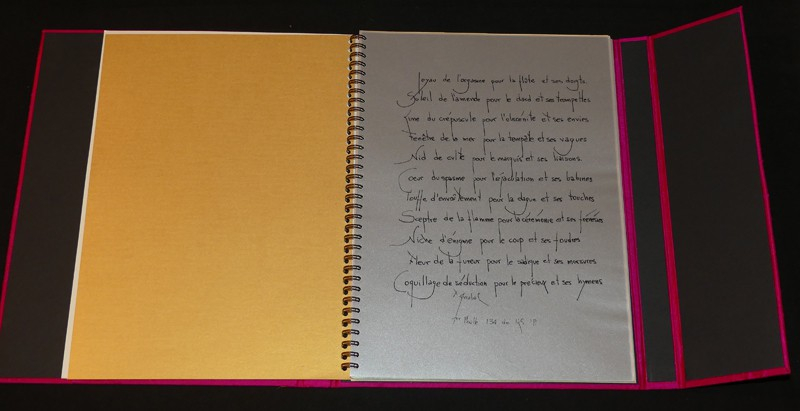 Joyau de l'orgasme pour la flûte et ses doigts
Soleil de l'amande pour le dard et ses trompettes
Cime du crépuscule pour l'obscénité et ses envies
Fenêtre de la mer pour la tempête et ses vagues
Nid de coït pour le marquis et ses liaisons
Coeur du spasme pour l'éjaculation et ses
Touffe d'envoûtement pour la dague et ses torches
Sceptre de la flamme pour la cérémonie et ses
d'énigme pour le coup et ses foudres
Fleur de la fureur pour le sadique et ses morsures
Coquillage de séduction pour le précieux et ses hymens